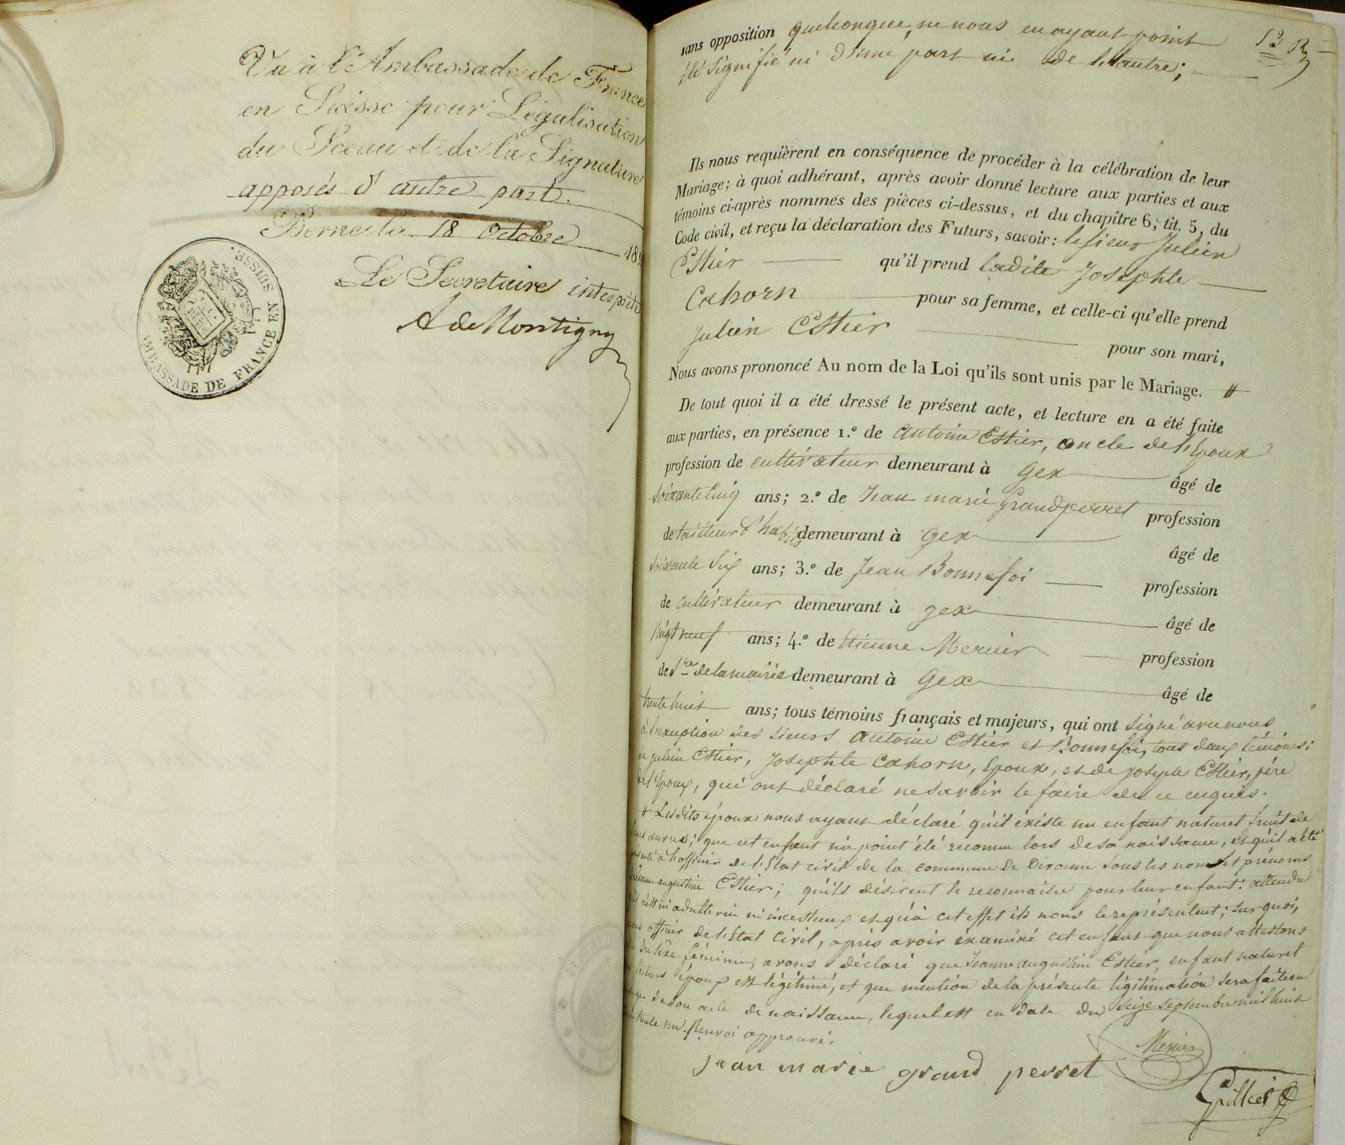 Vu à l'Ambassade de France
en Suisse pour Légalisation
du Sceau et de la Signature
apposés d'autre part.
Berne le 18 Octobre 18
Le Secrétaire interprète
A de Montigny
AMBASSADE DE FRANCE EN SUISSE.
sans opposition quelconque, ne nous en ayant point
été signifié ni d'une part ni de l'autre;
Ils nous requièrent en conséquence de procéder à la célébration de leur
Mariage; à quoi adhérant, après avoir donné lecture aux parties et aux
témoins ci-après nommés des pièces ci-dessus, et du chapitre 6, tit. 5, du
Code civil, et reçu la déclaration des Futurs, savoir: le sieur Julien
Estier qu'il prend ladite Josephte
Cahorn pour sa femme, et celle-ci qu'elle prend
Julien Estier
pour son mari,
Nous avons prononcé Au nom de la Loi qu'ils sont unis par le Mariage. #
De tout quoi il a été dressé le présent acte, et lecture en a été faite
aux parties, en présence 1.° de Antoine Estier, oncle de l'Epoux
profession de cultivateur demeurant à Gex âgé de
soixante cinq ans; 2.° de Jean marie Grandperret profession
de tailleur d'habits demeurant à Gex âgé de
soixante six ans; 3.° de Jean Bonnefoi profession
de cultivateur demeurant à gex âgé de
vingt neuf ans; 4.° de Etienne Mercier profession
de S.re de la mairie demeurant à Gex âgé de
trente huit ans; tous témoins français et majeurs, qui ont signé avec nous
à l'exception des sieurs Antoine Estier et Bonnefoi, tous deux témoins;
de julien Estier, Josephte Cahorn, Epoux, et de Joseph Estier, père
de l'Epoux, qui ont déclaré ne savoir le faire de ce enquis.
# Lesdits époux nous ayant déclaré qu'il existe un enfant naturel fruit de
leurs œuvres; que cet enfant n'a point été reconnu lors de sa naissance, et qu'il a été
présenté à l'officier de l'Etat civil de la commune de Divonne sous les noms et prénoms
Jeanne augustine Estier; qu'ils désirent le reconnaître pour leur enfant: attendu
qu'il n'est ni adultérin ni incestueux et qu'à cet effet ils nous le représentent; sur quoi,
nous officier de l'Etat Civil, après avoir examiné cet enfant que nous attestons
être du sexe féminin, avons déclaré que Jeanne augustine Estier, enfant naturel
des futurs époux est légitimé, et que mention de la présente légitimation sera faite en
marge de son acte de naissance, lequel est en date du seize septembre mil huit
cent trente un. Renvoi approuvé.
Mercier
jean marie grand perret